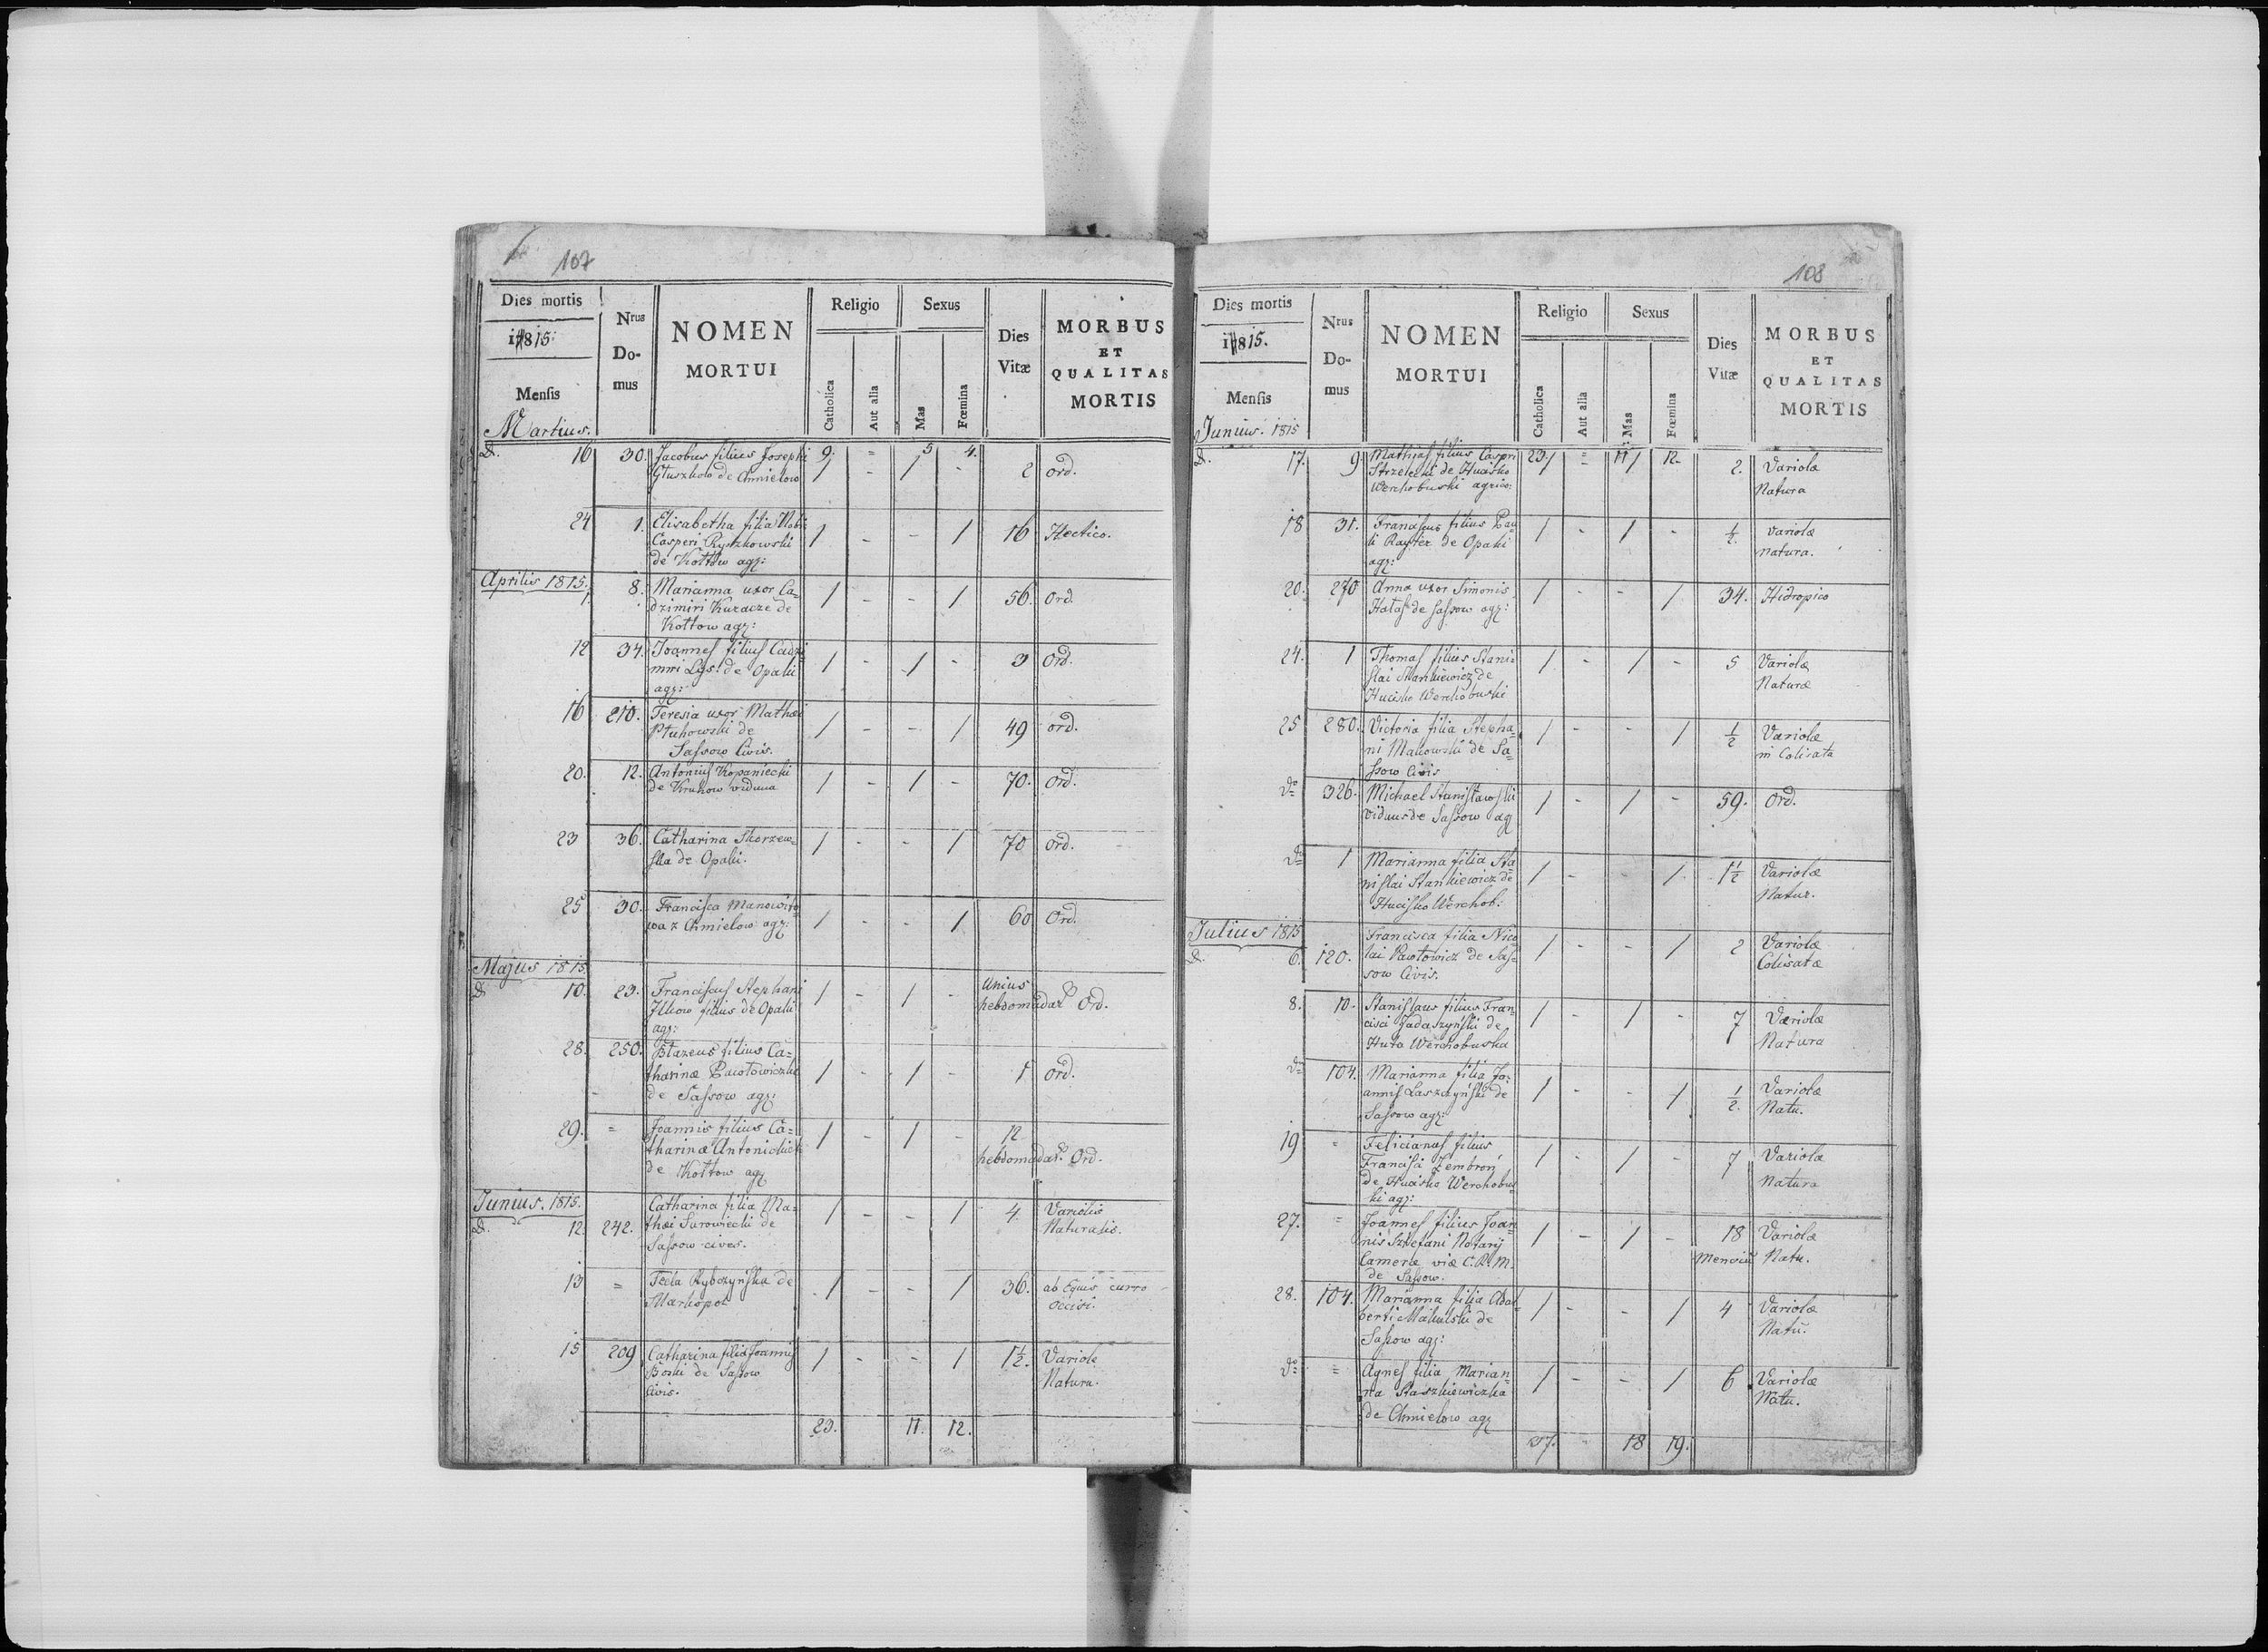 107
Dies mortis
1815.
Mensis
Martius.
Nrus
Do-
mus
NOMEN
MORTUI
Religio
Catholica
Aut alia
Sexus
Mas
Fœmina
Dies
Vitæ
MORBUS
ET
QUALITAS
MORTIS
9. = 5 4.
D. 16 30. Jacobus filius Josephi
Głuszkow de Chmielow 1 - 1 - 2 ord.
24 1. Elisabetha filia Nob:
Casperi Ryszkowski
de Kołtow agr: 1 - - 1 16 Hectico.
Aprilis 1815.
1. 8. Marianna uxor Ca=
dzimiri Kuracze de
Kołtow agr: 1 - - 1 56. Ord.
12 34. Joannes filius Cadzi
miri Lys: de Opaki
agr: 1 - 1 - 3 Ord.
16 210. Teresia uxor Mathæi
Ptuhowski de
Sassow Civis. 1 - - 1 49 ord.
20. 12. Antonius Kopaniecki
de Kruhow viduus 1 - 1 - 70. Ord.
23 36. Catharina Skorzew=
ska de Opaki. 1 - - 1 70 ord.
25 30. Francisca Manowito
wa z Chmielow agr: 1 - - 1 60 Ord.
Majus 1815.
D. 10. 23. Franciscus Stephani
Ilkow filius de Opaki
agr: 1 - 1 - Unius
hebdomadae Ord.
28. 250. Błazeus filius Ca=
tharinæ Pawłowiczka
de Sassow agr: 1 - 1 - 1 Ord.
29. = Joannis filius Ca=
tharinæ Antonichuk
de Kołtow agr 1 - 1 - 12
hebdomadar. Ord.
Junius. 1815.
D. 12. 242. Catharina filia Ma=
thæi Surowiecki de
Sassow cives. 1 - - 1 4. Variolis
Naturalis.
13 = Tecla Rybczyńska de
Markopol 1 - - 1 36. ab Equis curro
occisi.
15 209 Catharina filia Joannis
Boski de Sassow
Civis. 1 - - 1 1½. Variole
Natura.
23. 11. 12.
108
Dies mortis
1815.
Mensis
Junius. 1815
Nrus
Do-
mus
NOMEN
MORTUI
Religio
Catholica
Aut alia
Sexus
Mas
Fœmina
Dies
Vitæ
MORBUS
ET
QUALITAS
MORTIS
23 = 11 12.
D. 17. 9 Mathias filius Caspri
Strzelecki de Hucisko
Werchobuski agrico: 1 1 2. Variolæ
Natura
18 31. Franciscus filius Pau
li Rayter de Opaki
agr: 1 - 1 - ½. Variolæ
natura.
20. 270 Anna uxor Simonis
Hałas de Sassow agr: 1 - - 1 34. Hidropico
24. 1 Thomas filius Stani=
slai Stankiewicz de
Hucisko Werchobuski 1 - 1 - 5 Variolæ
Naturæ
25 280. Victoria filia Stepha=
ni Makowski de Sa=
ssow Civis 1 - - 1 ½ Variolæ
in Colisata
do 326. Michael Stanisławski
viduus de Sassow agr 1 - 1 - 59. Ord.
do 1 Marianna filia Sta
nislai Stankiewicz de
Hucisko Werchob: 1 - 1 1½ Variolæ
Natur.
Julius 1815
D. 6. 120. Francisca filia Nico
lai Pawłowicz de Sas=
sow Civis. 1 - - 1 2 Variolæ
Colisatæ
8. 10. Stanislaus filius Fran=
cisci Jadaszyński de
Huta Werchobuska 1 - 1 - 7 Variolæ
Natura
do 104. Marianna filia Jo=
annis Laszczyński de
Sassow agr: 1 - - 1 ½. Variolæ
Natu.
19 = Felicianus filius
Francisci Zembroń
de Hucisko Werchobus=
ki agr: 1 - 1 - 7 Variolæ
Natura
27. = Joannes filius Joan
nis Sztefani Notarij
Cameræ viæ C. R. M.
de Sassow. 1 - 1 - 18
Mensiu Variolæ
Natu.
28. 104. Marianna filia Adal=
berti Makulski de
Sassow agr: 1 - - 1 4 Variolæ
Natu.
do = Agnes filia Marian=
na Staszkiewiczka
de Chmielow agr 1 - - 1 6 Variolæ
Natu.
37. - 18 19.